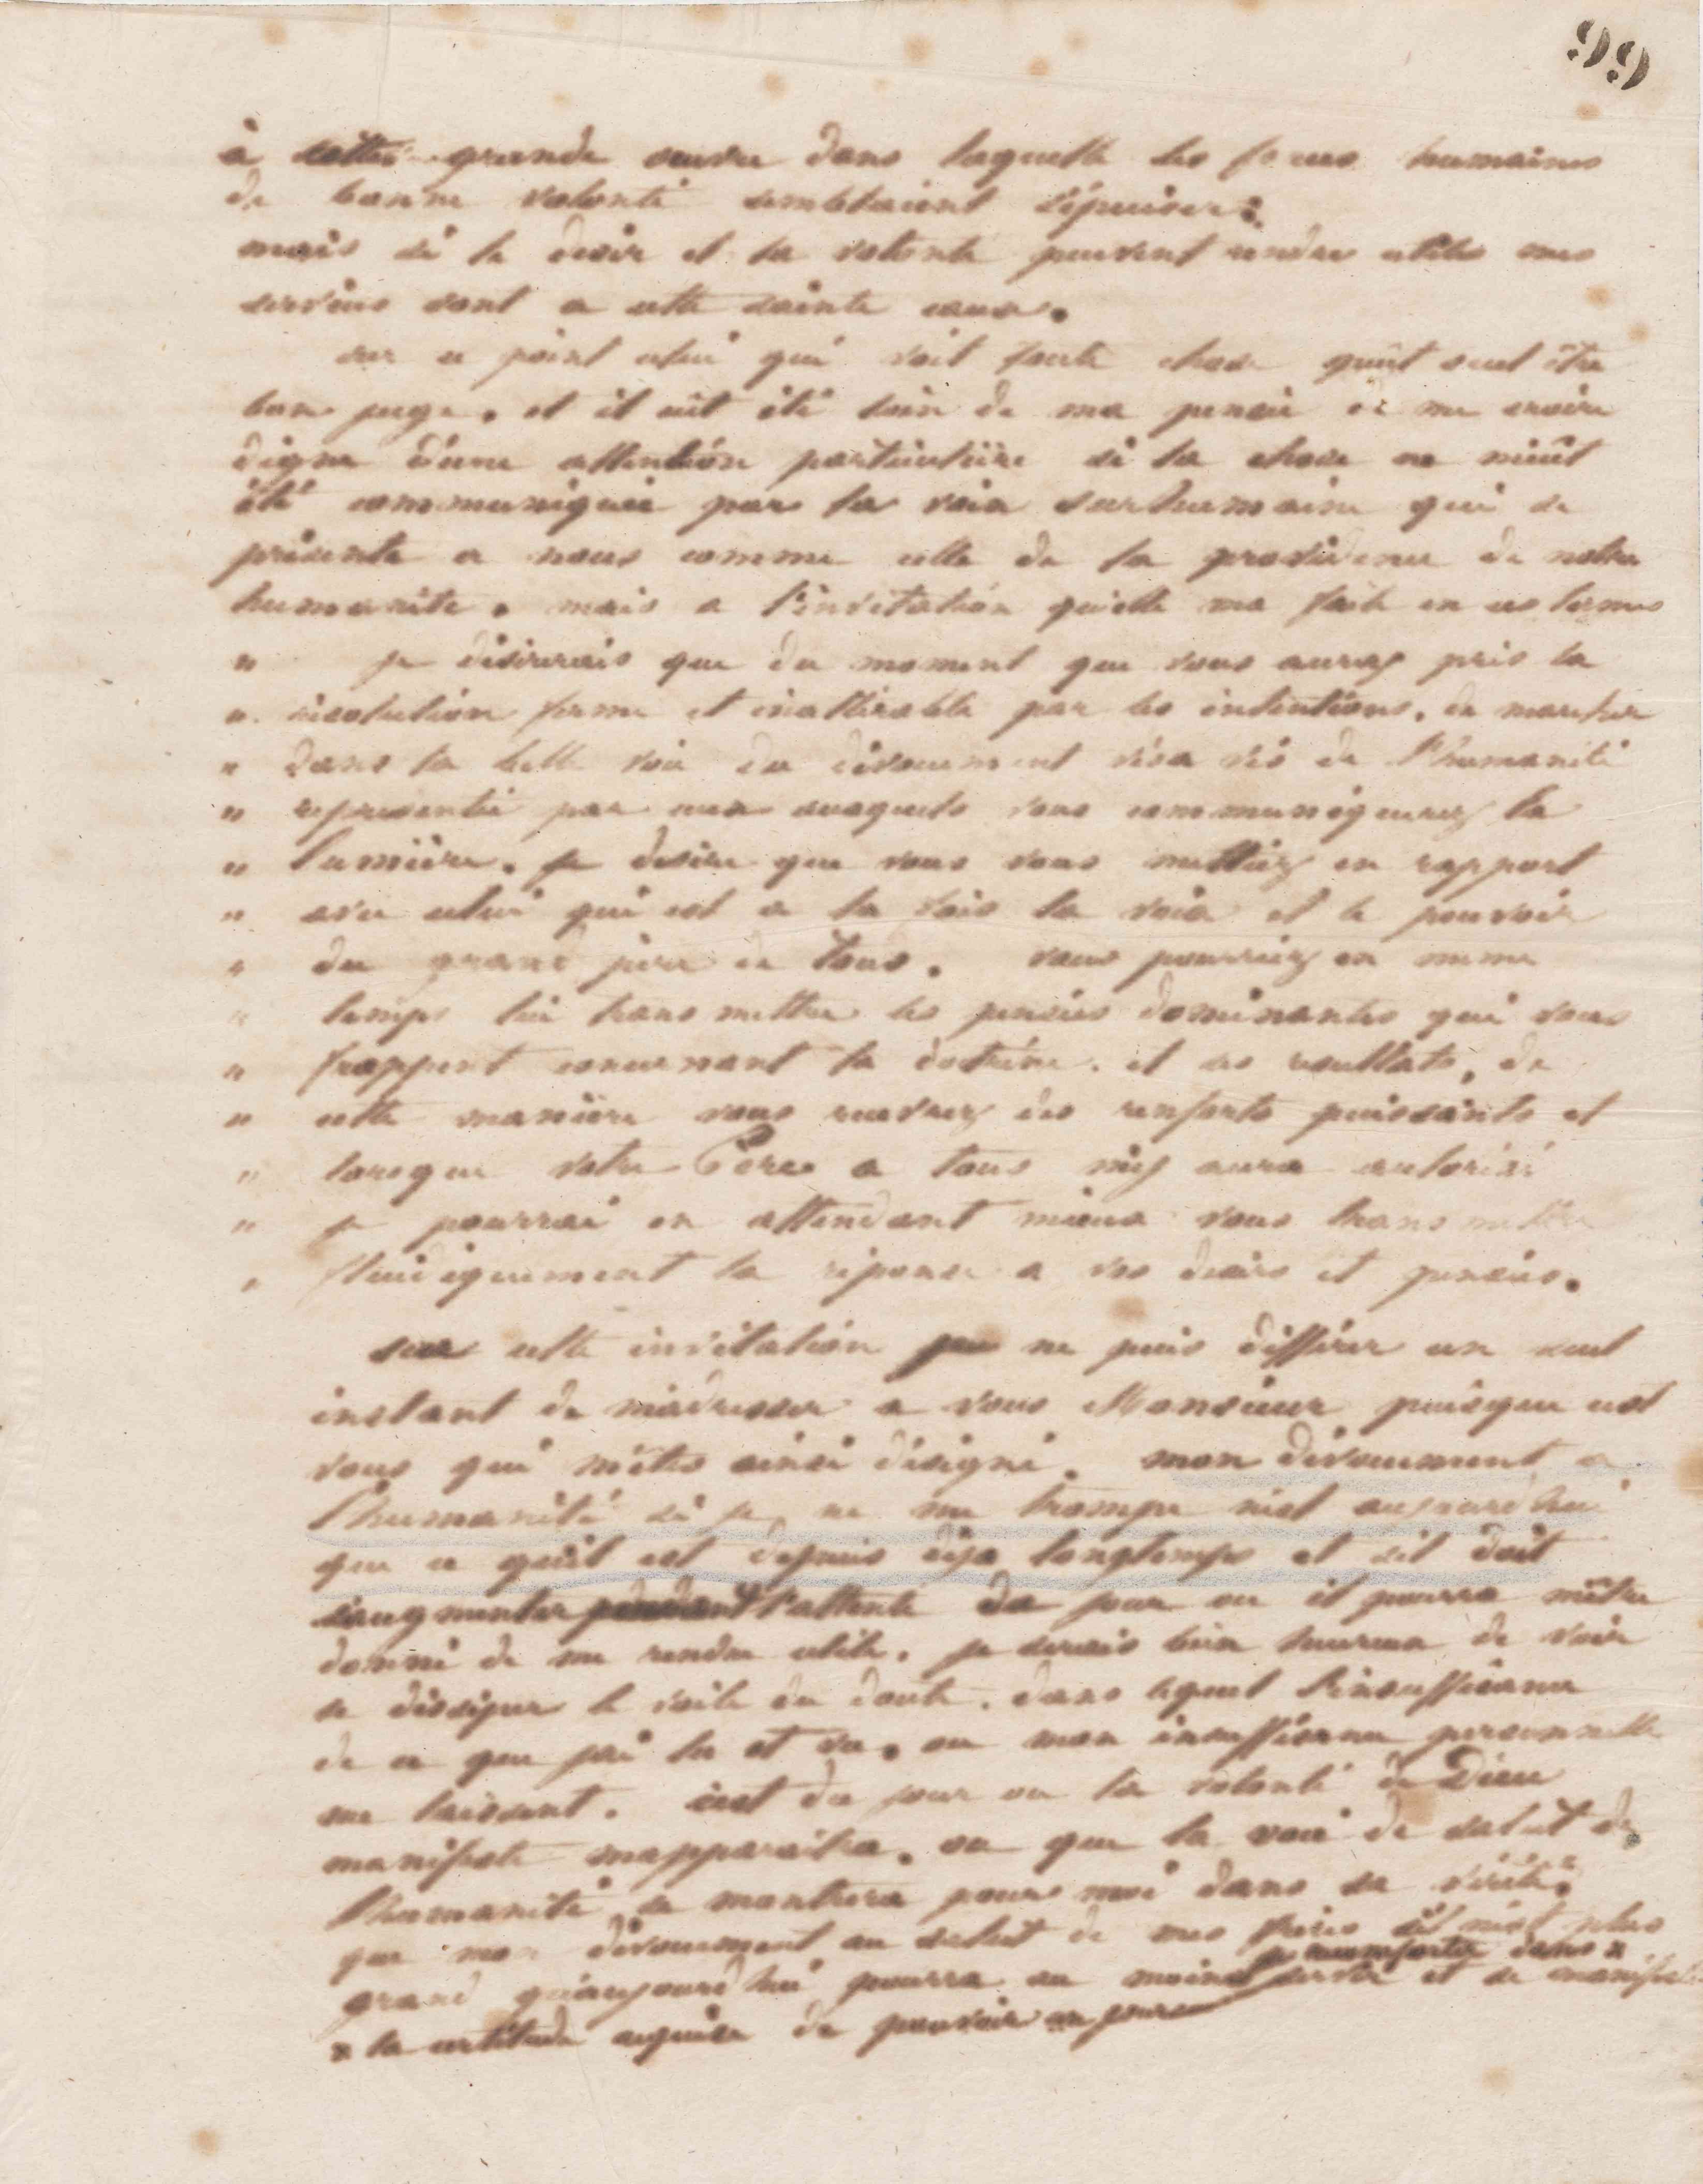 99
à cette grande œuvre dans laquelle les forces humaines
de bonne volonté semblaient s'épuiser.
mais si le desir et la volonte peuvent rendre utiles mes
services sont a cette sainte cause.
sur ce point celui qui voit toute chose peut seul être
bon juge. et il eut été loin de ma pensée de me croire
digne d'une attention particulière si la chose ne m'eût
été communiquée par la voix surhumaine qui se
présente a nous comme celle de la providence de notre
humanite. mais a l'invitation qu'elle ma faite en ces termes
" je désirerais que du moment que vous aurez pris la
" résolution ferme et inalterable par les intentions. de marcher
" dans la belle voie du dévouement vis a vis de l'humanité
" representée par ceux auxquels vous communiquerez la
" lumière. je desire que vous vous mettiez en rapport
" avec celui qui est a la fois la voix et le pouvoir
" du grand père de tous. vous pourriez en meme
" temps lui transmettre les pensées dominantes qui vous
" frappent concernant la doctrine. et ses resultats, de
" cette manière vous recevrez des renforts puissants et
" lorsque votre Père a tous m'y aura autorisé
" je pourrai en attendant mieux vous transmettre
" fluidiquement la réponse a vos desirs et pensées.
sur cette invitation je ne puis différer un seul
instant de m'adresser a vous Monsieur puisque c'est
vous qui m'êtes ainsi désigné. mon dévouement a
l'humanité si je ne me trompe n'est aujourd'hui
que ce qu'il est depuis déja longtemps et s'il doit
s'augmenter pendant l'attente du jour ou il pourra m'être
donné de me rendre utile. je serais bien heureux de voir
se dissiper le voile du doute. dans lequel l'insuffisance
de ce que j'ai lu et vu. ou mon insuffisance personnelle
me laissent. c'est du jour ou la volonté de Dieu
manifeste m'apparaitra. ou que la voie de salut de
l'humanité se montrera pour moi dans sa vérité.
que mon dévouement au salut de mes frères s'il n'est plus
grand qu'aujourd'hui pourra au moins servir et se manifester
je me conforte dans x
x la certitude acquise de pouvoir un jour